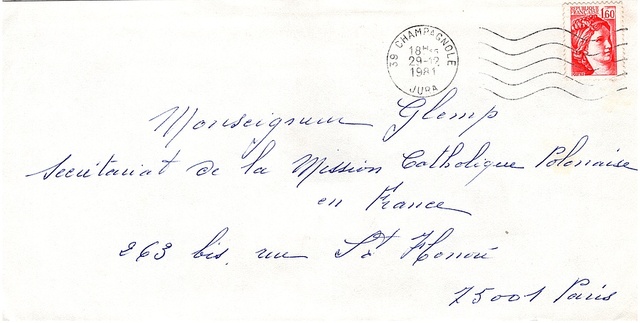 RÉPUBLIQUE FRANÇAISE
1,60
39 CHAMPAGNOLE
18H
29-12
1981
JURA
Monseigneur Glemp
Secrétariat de la Mission Catholique Polonaise
en France
263 bis, rue St Honoré
75001 Paris